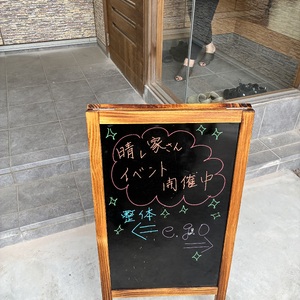 晴レ家さん
イベント
開催中
整体
e.g.o